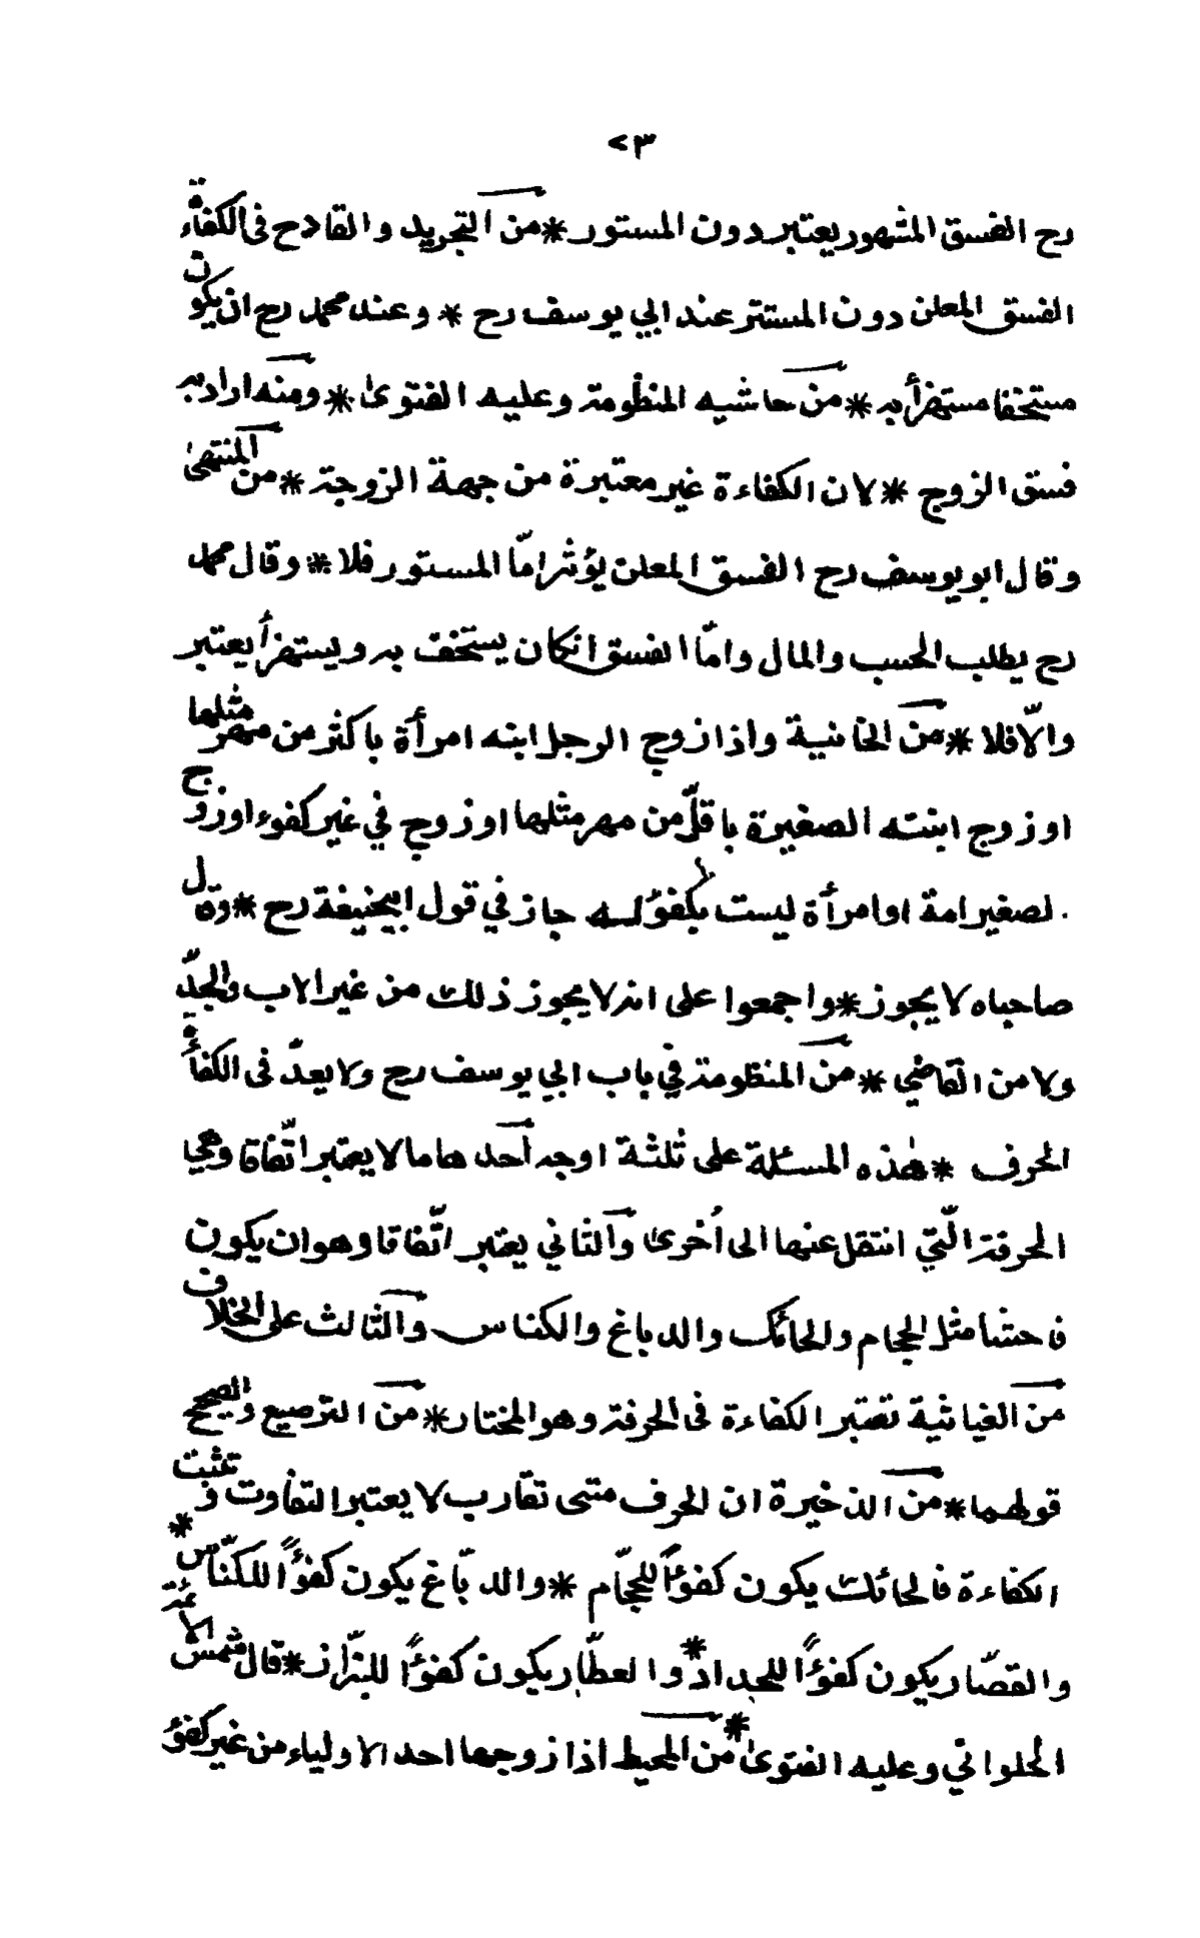 ٧٣
رح الفسق المشهور يعتبر دون المستور * من التجريد والقادح فى الكفاءة
الفسق المعلن دون المستتر عند ابي يوسف رح * وعند محمد رح ان يكون
مستخفا مستهزأ به * من حاشيه المنظومة وعليه الفتوىٰ * ومنه اراد به
فسق الزوج * لان الكفاءة غير معتبرة من جهة الزوجة * من المنتهىٰ
وقال ابو يوسف رح الفسق المعلن يؤثر امّا المستور فلا * وقال محمد
رح يطلب الحسب والمال وامّا الفسق انكان يستخف به ويستهزأ يعتبر
والّا فلا * من الخانية واذا زوج الرجل ابنه امرأة باكثر من مهر مثلها
او زوج ابنته الصغيرة باقلّ من مهر مثلها او زوج في غير كفوء او زوج
لصغير امة اوامرأة ليست بكفؤ له جاز في قول ابيحنيفة رح * وقال
صاحباه لا يجوز * واجمعوا على انه لا يجوز ذلك من غير الاب والجدّ
ولا من القاضي * من المنظومة في باب ابي يوسف رح ولا يعدّ فى الكفأة
الحرف * هٰذه المسئلة على ثلثة اوجه احدهاما لا يعتبر اتّفاقا وهي
الحرفة الّتي انتقل عنها الى أخرىٰ والثاني يعتبر اتّفاقا وهو ان يكون
فاحشا مثل الحجام والحائك والدباغ والكناس والثالث على الخلاف
من الغياثية تعتبر الكفاءة فى الحرفة وهو المختار * من الترصيع والصحيح
قولهما * من الذخيرة ان الحرف متى تقارب لا يعتبر التفاوت وتثبت
الكفاءة فالحائك يكون كفؤًا للحجّام * والدبّاغ يكون كفؤًا للكنّاس *
والقصّار يكون كفؤًا للحداد * والعطّار يكون كفؤًا للبزّاز * قال شمس الائمة
الحلواني وعليه الفتوىٰ * من المحيط اذا زوجها احد الاولياء من غير كفؤ